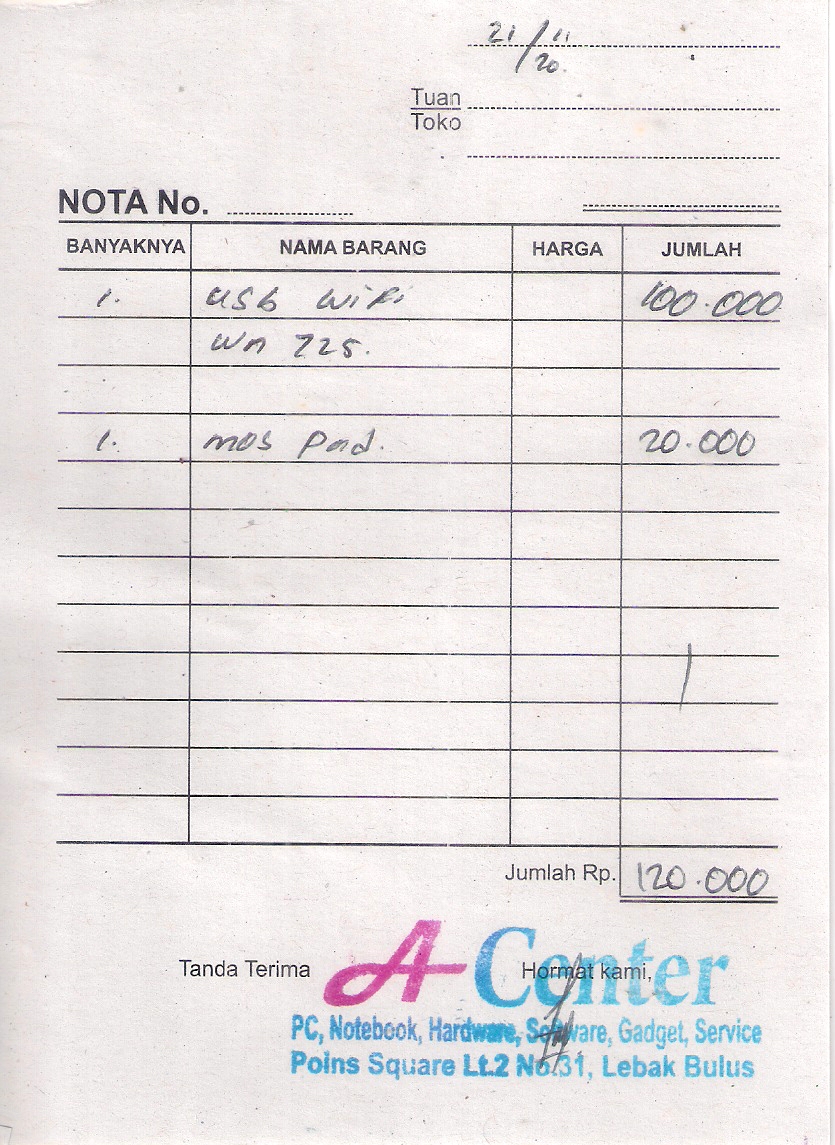 21/11
20.
Tuan
Toko
NOTA No.
BANYAKNYA NAMA BARANG HARGA JUMLAH
1. USB WiFi 100.000
Wn 725.
1. mos Pad. 20.000
Jumlah Rp. 120.000
Tanda Terima Hormat kami,
A Center
PC, Notebook, Hardware, Software, Gadget, Service
Poins Square Lt.2 No.31, Lebak Bulus